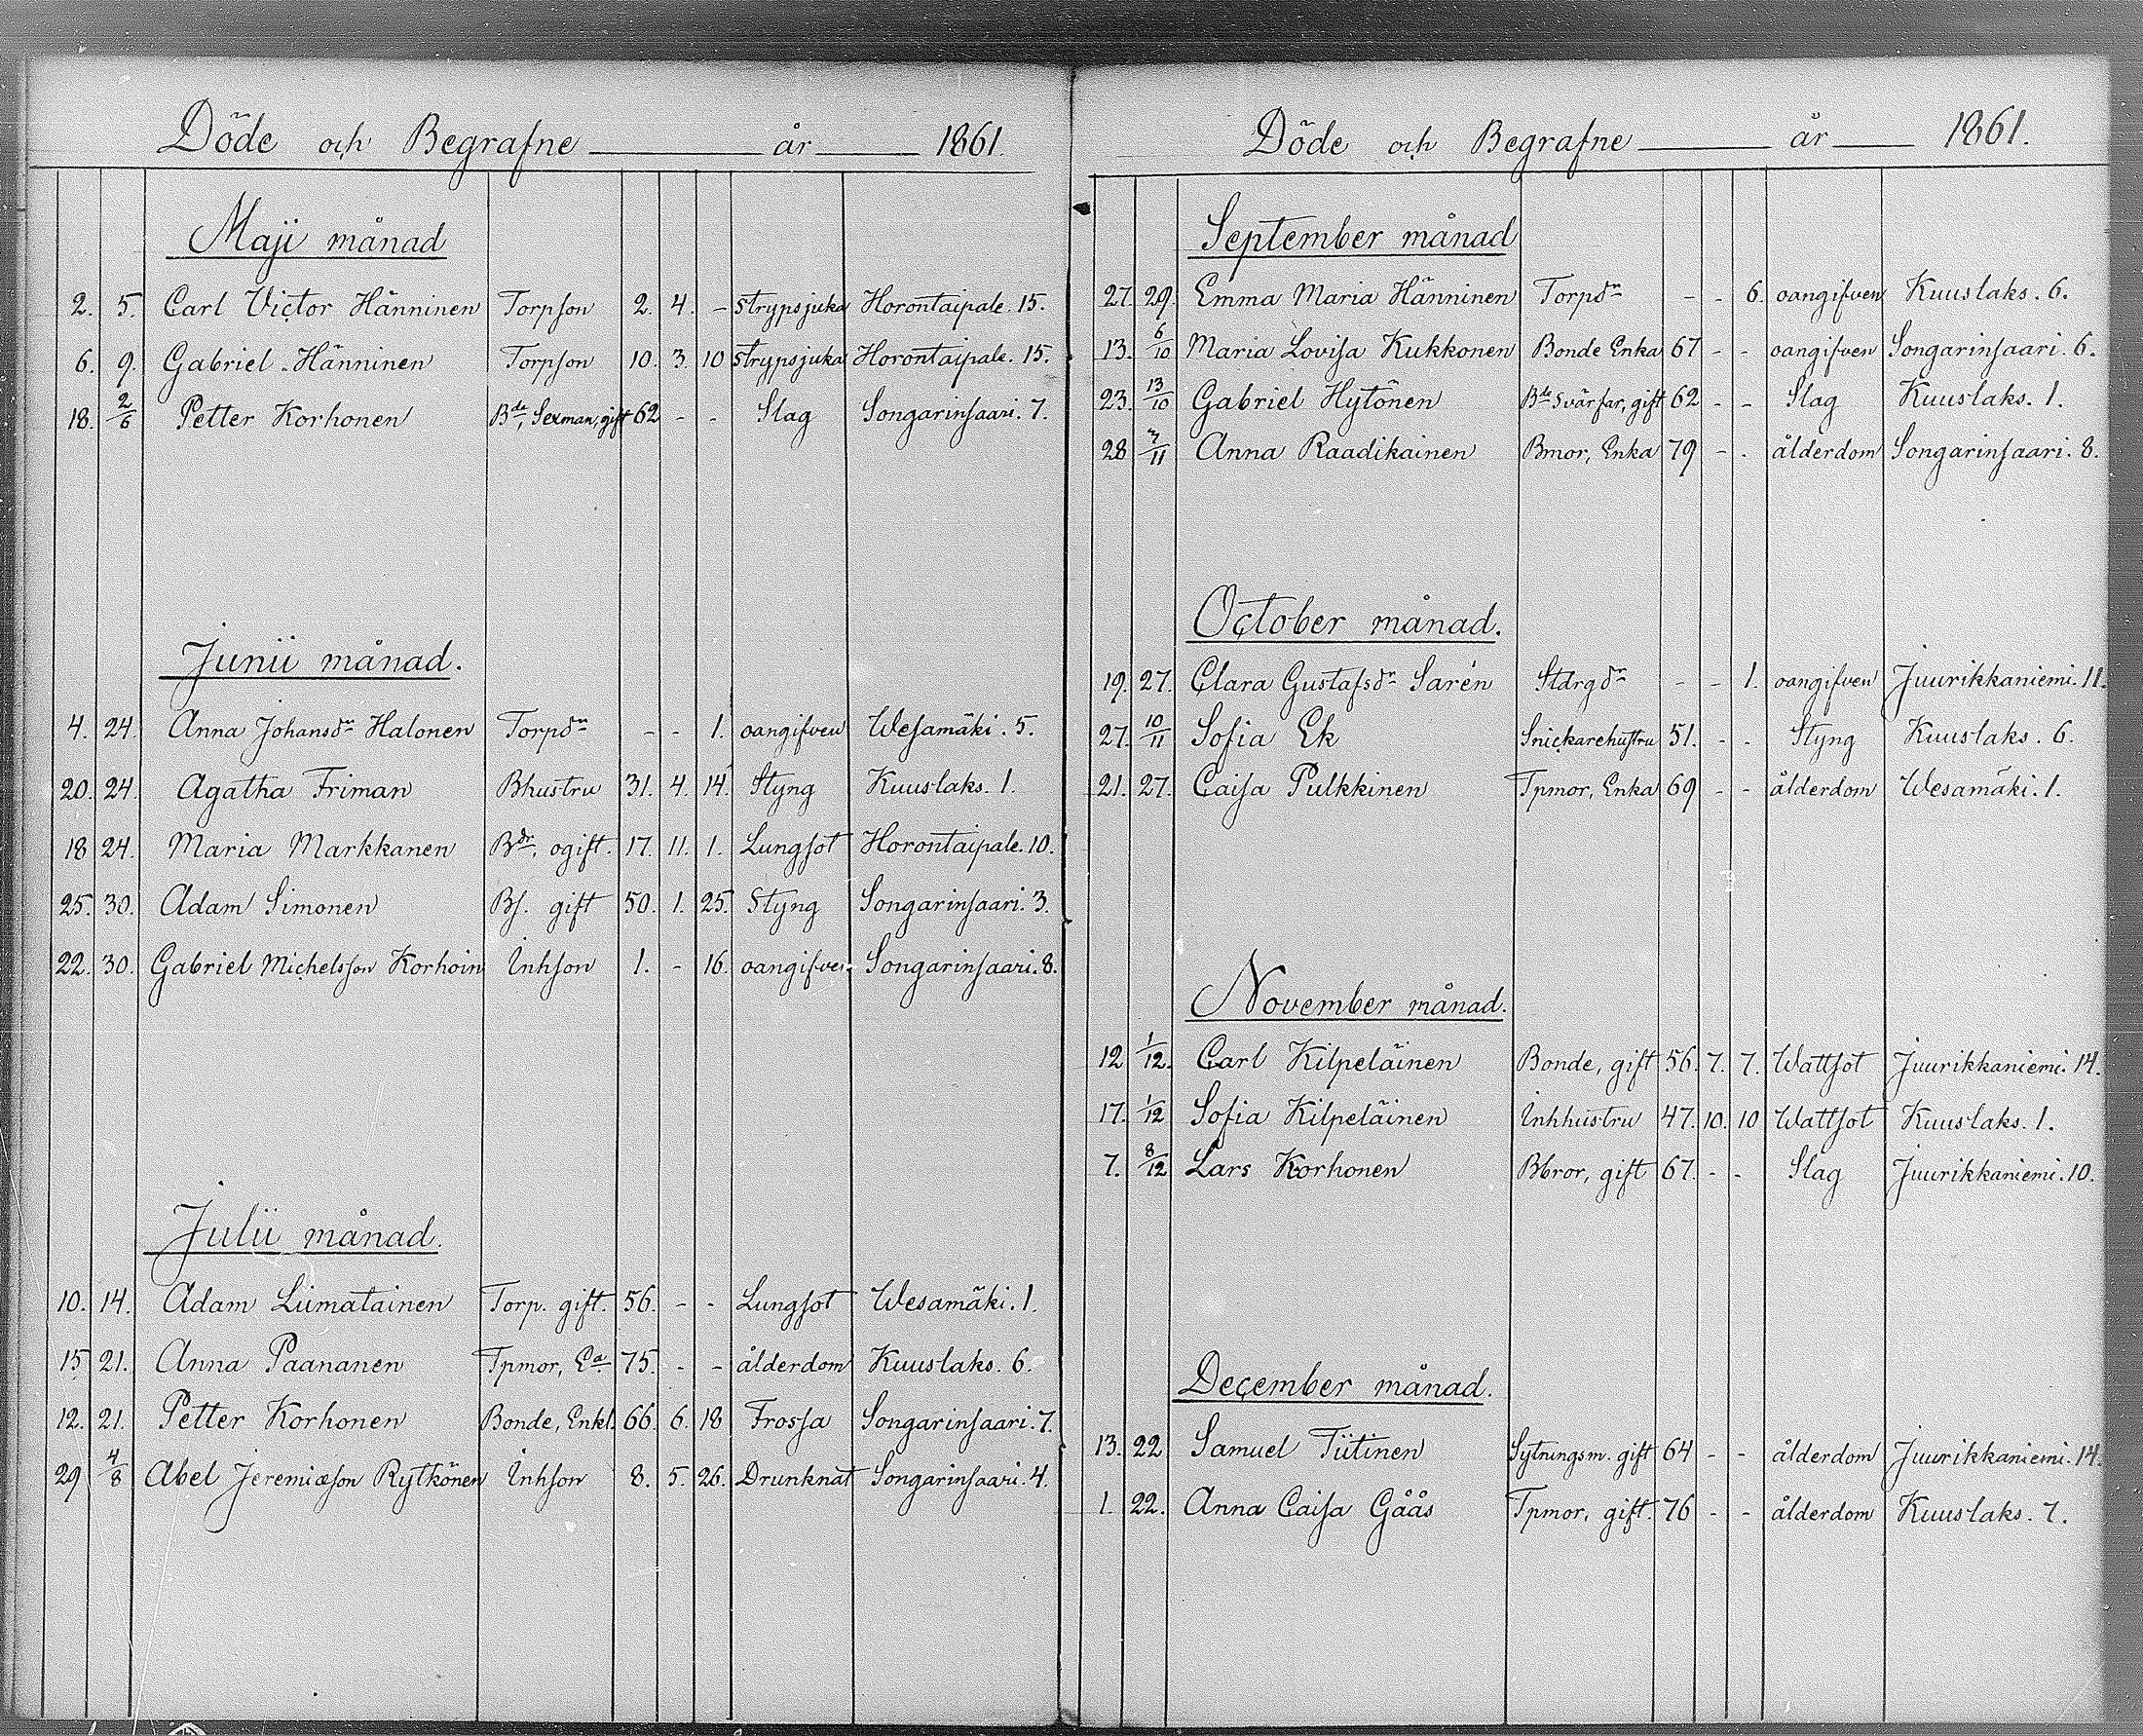 Döde och Begrafne år 1861.
Maji månad
2. 5. Carl Victor Hänninen Torpson 2. 4. - Strypsjuka Horontaipale. 15.
6. 9. Gabriel Hänninen Torpson 10. 3. 10 Strypsjuka Horontaipale. 15.
18. 2/6 Petter Korhonen Bde, Sexman, gift 62 - - Slag Songarinsaari. 7.
Junii månad.
4. 24. Anna Johansdr Halonen Torpdr - - 1. oangifven Wesamäki. 5.
20. 24. Agatha Friman Bhustru 31. 4. 14. Styng Kuuslaks. 1.
18 24. Maria Markkanen Bdr, ogift. 17. 11. 1. Lungsot Horontaipale. 10.
25. 30. Adam Simonen Bs. gift 50. 1. 25. Styng Songarinsaari. 3.
22. 30. Gabriel Michelsson Korhoin Inhson 1. - 16. oangifven Songarinsaari. 8.
Julii månad.
10. 14. Adam Liimatainen Torp. gift. 56. - - Lungsot Wesamäki. 1.
15 21. Anna Paananen Tpmor, Ea 75. - - ålderdom Kuuslaks. 6.
12. 21. Petter Korhonen Bonde, Enkl. 66. 6. 18 Frossa Songarinsaari. 7.
29 4/8 Abel Jeremiæson Rytkönen Inhson 8. 5. 26. Drunknat Songarinsaari. 4.
Döde och Begrafne år 1861.
September månad
27. 29. Emma Maria Hänninen Torpdr - - 6. oangifven Kuuslaks. 6.
13. 6/10 Maria Lovisa Kukkonen Bonde Enka 67 - - oangifven Songarinsaari. 6.
23. 13/10 Gabriel Hytönen Bde Svärfar, gift 62 - - Slag Kuuslaks. 1.
28 3/11 Anna Raadikainen Bmor, Enka 79 - - ålderdom Songarinsaari. 8.
October månad.
19. 27. Clara Gustafsdr Sarén Stdrgdr - - 1. oangifven Juurikkaniemi. 11.
27. 10/11 Sofia Ek Snickarehustru 51. - - Styng Kuuslaks. 6.
21. 27. Caisa Pulkkinen Tpmor, Enka 69 - - ålderdom Wesamäki. 1.
November månad.
12 1/12. Carl Kilpeläinen Bonde, gift 56. 7. 7. Wattsot Juurikkaniemi. 14.
17. 1/12 Sofia Kilpeläinen Inhhustru 47. 10. 10 Wattsot Kuuslaks. 1.
7. 8/12 Lars Korhonen Bbror, gift 67. - - Slag Juurikkaniemi. 10.
December månad.
13. 22 Samuel Tiitinen Sytningsm. gift 64 - - ålderdom Juurikkaniemi. 14.
1. 22. Anna Caisa Gåås Tpmor, gift. 76 - - ålderdom Kuuslaks. 7.